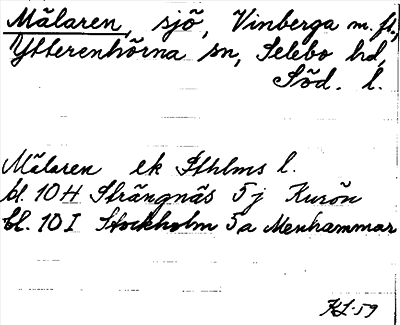 Mälaren, sjö, Vinberga m. fl.,
Ytterenhörna sn, Selebo hd,
Söd. l.
Mälaren ek Sthlms l.
bl. 10 H Strängnäs 5 j Kurön
bl. 10 I Stockholm 5 a Menhammar
KL. 59